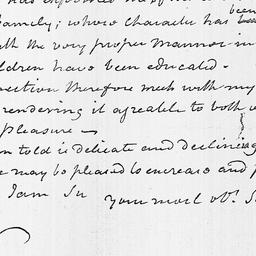 been
family; whose character has
the very proper manner in
ildren have been educated.
ection therefore meets with my
rendering it agreeable to both
pleasure —
m told is delicate and declining
e may be pleased to encrease and p
I am Sir
your most obt. S